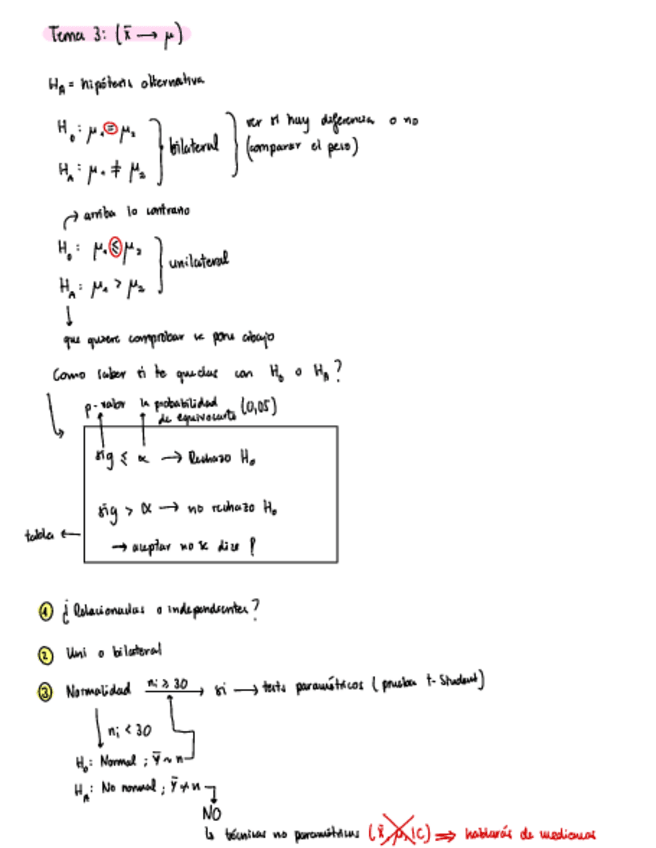 Tema 3: (x̄ → μ)
H_A = hipótesis alternativa
H₀: μ₁ = μ₂
H_A: μ₁ ≠ μ₂
bilateral
ver si hay diferencia o no
(comparar el peso)
→ arriba lo contrario
H₀: μ₁ ≤ μ₂
H_A: μ₁ > μ₂
unilateral
↓
que quiere comprobar se pone abajo
Como saber si te quedas con H₀ o H_A?
p-valor la probabilidad
de equivocarte (0,05)
sig ≤ α → Rechazo H₀
sig > α → no rechazo H₀
tabla ←
→ aceptar no se dice !
1 ¿Relacionadas o independientes?
2 Uni o bilateral
3 Normalidad nᵢ ≥ 30 → si → tests paramétricos (prueba t-Student)
nᵢ < 30
H₀: Normal ; ȳ ~ n
H_A: No normal ; ȳ ≁ n
NO
↳ técnicas no paramétricas (x̄, μ, IC) ⇒ hablarás de medianas